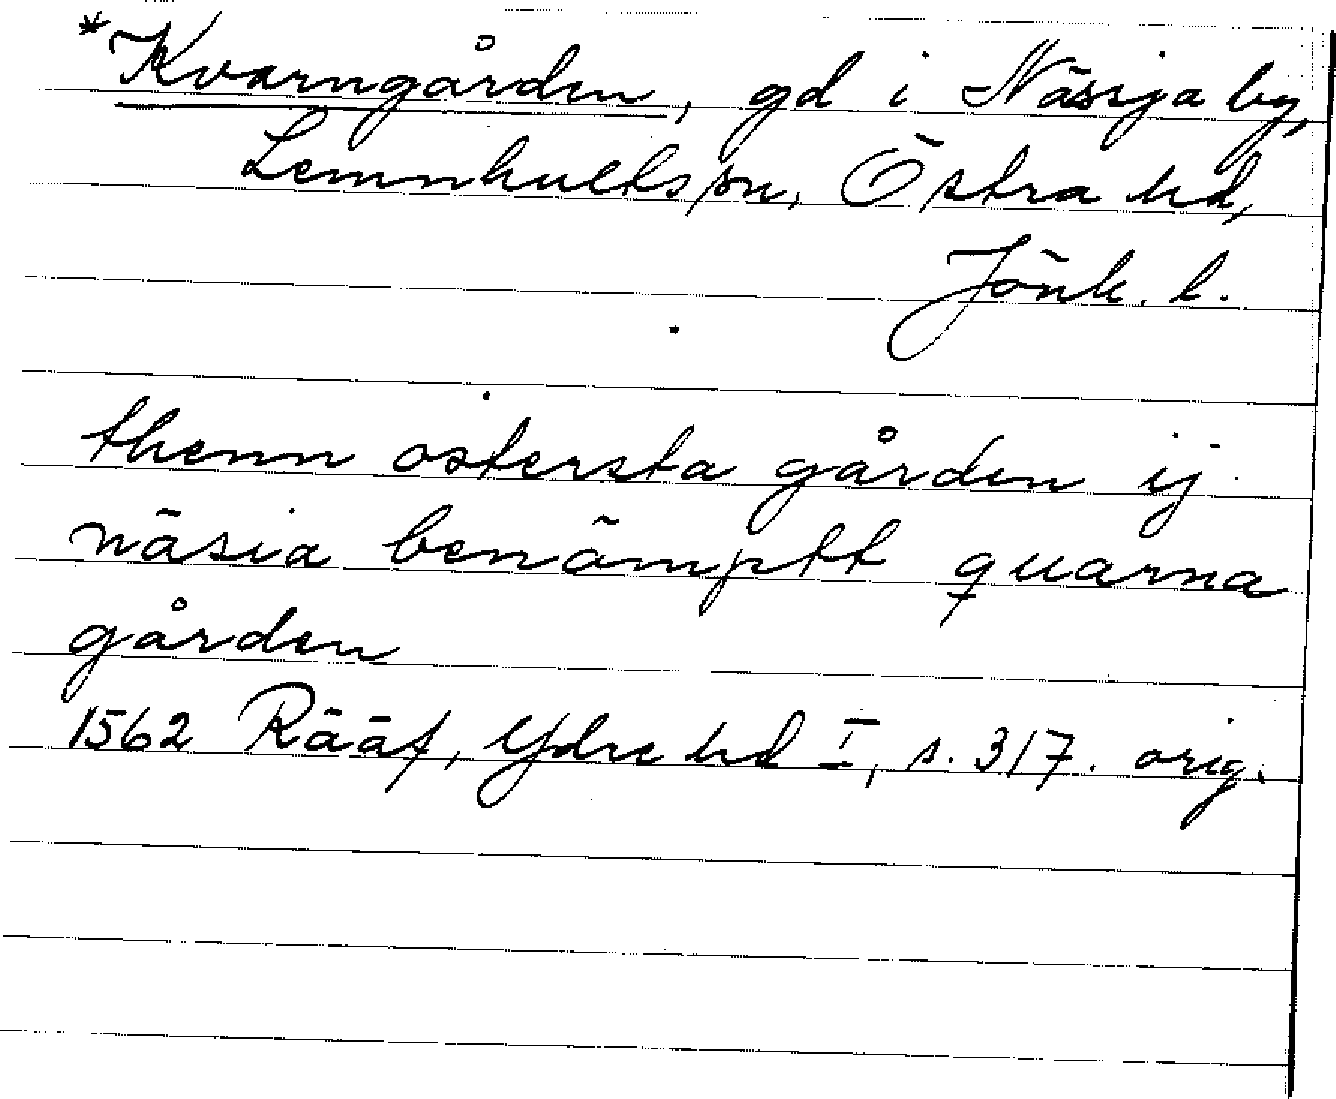 *Kvarngården, gd i Näsrja by,
Lemnhults sn, Östra hd,
Jönk. l.
thenn ostersta gården ij
näsia benämptt quarna
gården
1562 Rääf, Ydre hd I, s. 317. orig.